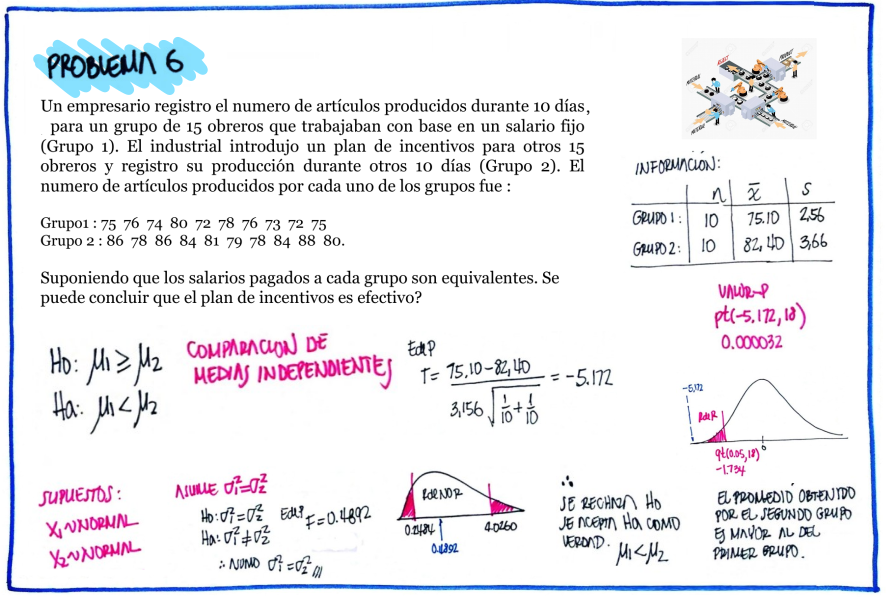 PROBLEMA 6
Un empresario registro el numero de artículos producidos durante 10 días,
para un grupo de 15 obreros que trabajaban con base en un salario fijo
(Grupo 1). El industrial introdujo un plan de incentivos para otros 15
obreros y registro su producción durante otros 10 días (Grupo 2). El
numero de artículos producidos por cada uno de los grupos fue :
Grupo1 : 75 76 74 80 72 78 76 73 72 75
Grupo 2 : 86 78 86 84 81 79 78 84 88 80.
Suponiendo que los salarios pagados a cada grupo son equivalentes. Se
puede concluir que el plan de incentivos es efectivo?
INFORMACIÓN:
n x̅ S
GRUPO 1: 10 75.10 2,56
GRUPO 2: 10 82,40 3,66
VALOR-P
pt(-5.172,18)
0.000032
Ho: μ1 ≥ μ2
Ha: μ1 < μ2
COMPARACION DE
MEDIAS INDEPENDIENTES
EdeP
T = (75,10 - 82,40) / (3,156 √(1/10 + 1/10)) = -5.172
-5,172
RdeR
0
qt(0.05,18)
-1.734
SUPUESTOS:
X1 ~ NORMAL
X2 ~ NORMAL
ASUME σ1² = σ2²
Ho: σ1² = σ2²
Ha: σ1² ≠ σ2²
EdeP F = 0.4892
∴ ASUMO σ1² = σ2² //
RdeNOR
0.2484 4.0260
0.4892
∴
SE RECHAZA Ho
SE ACEPTA Ha COMO
VERDAD.
μ1 < μ2
EL PROMEDIO OBTENIDO
POR EL SEGUNDO GRUPO
ES MAYOR AL DEL
PRIMER GRUPO.